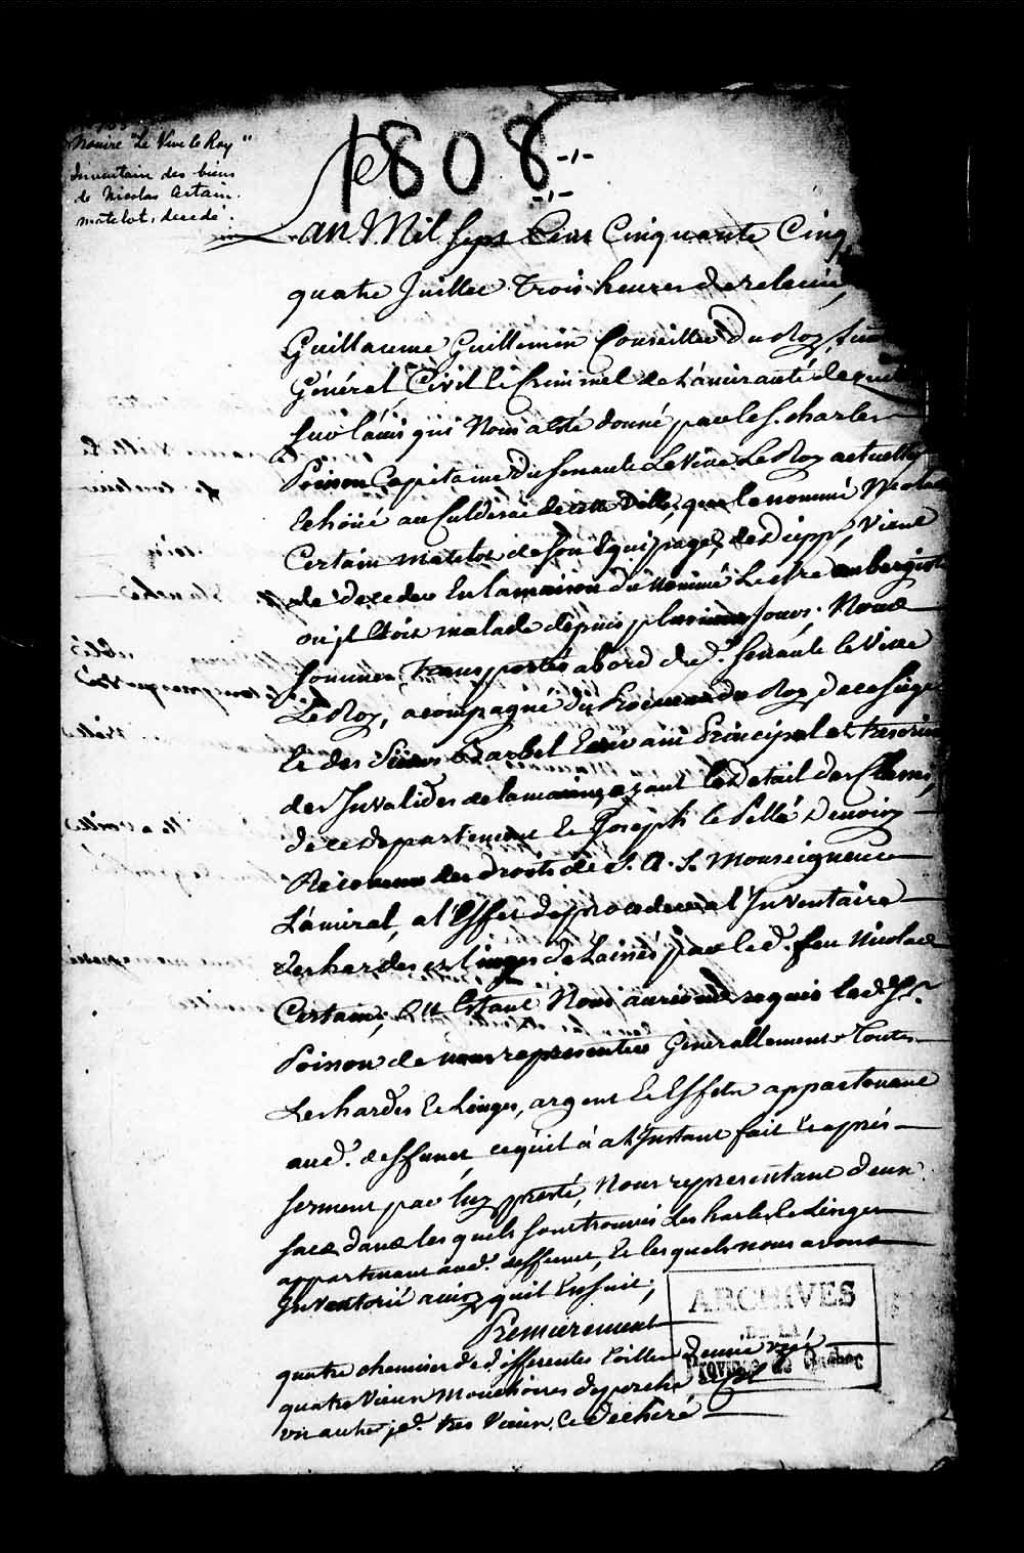 1755
Navire "Le Vive le Roy"
Inventaire des biens
de Nicolas Certain
matelot, décédé.
1808
-1-
-1-
L'an Mil Sept Cens Cinquante Cinq
quatre Juillet trois heures de relevée,
Guillaume Guillemin Conseiller du Roy,
Général Civil et Criminel de L'amirauté de
sur l'avis qui Nous a esté donné par le S. charles
Poinson Capitaine du senault Le Vive Le Roy actuellem
Echöué au Culdesac de cette Ville, que le nommé Nicolas
Certain matelot de son Equipage, de Dieppe, Vient
de deceder En la maison du nommé Lestre aubergiste
ou jl Etoit malade depuis plusieurs jours, Nous
sommes transportés abord dud. senault le Vive
Le Roy, acompagné du Procureur du Roy de ce siege
Et des Sieurs Barbel Ecrivain Principal et tresorier
des Invalides de la marine, ayant le Detail des Classes
de ce departement Et Joseph le Pellé Devoisy
Receveur des droits de S. A. S. Monseigneur
L'amiral, a l'Effet de proceder a l'Inventaire
des hardes et linges delaissés par led. feu Nicolas
Certain, Ou Estant Nous aurions requis led. S.
Poinson de nous representer Generallement Toutes
Les hardes Et Linges, argent Et Effets appartenant
aud. deffunct, ce qu'il à a L'Instant fait Et après
serment par luy presté, Nous representant deux
sacs dans lesquels sont trouvés Les hardes et Linges
appartenant aud. deffunct, Et lesquels nous avons
Inventorié ainsy quil Ensuit;
Premierement
quatre chemises de differentes toilles demie uzé
quatre Vieux Mouchoires de poche
un autre jd. tres Vieux, Et dechiré
ARCHIVES
DE LA
Province de Québec